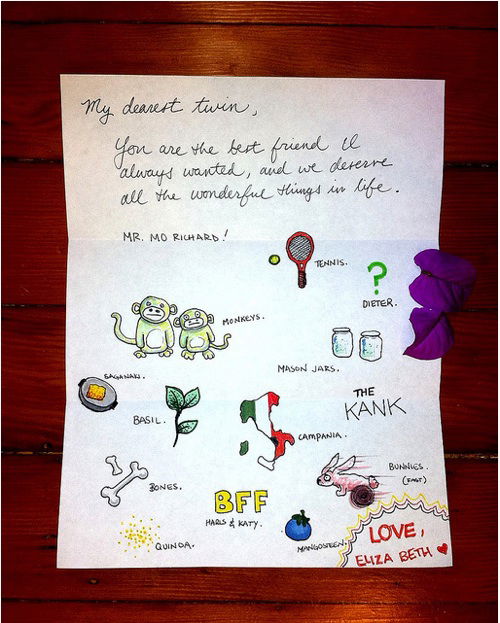 My dearest twin,
You are the best friend I'll
always wanted, and we deserve
all the wonderful things in life.
MR. MO RICHARD!
TENNIS.
?
DIETER.
MONKEYS.
MASON JARS.
SAGANAKI.
BASIL.
THE
KANK
CAMPANIA.
BONES.
BUNNIES.
(FAST)
BFF
HARLS & KATY.
QUINOA.
MANGOSTEEN.
LOVE,
ELIZA BETH